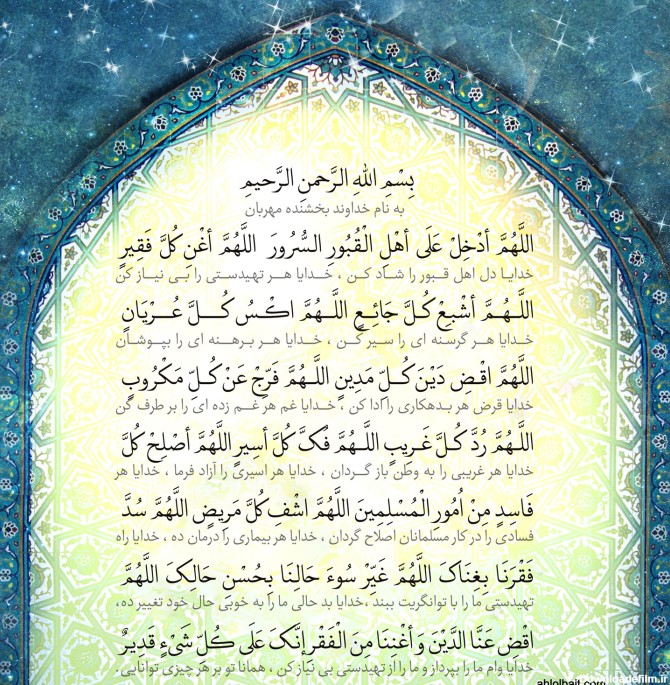 بِسْمِ اللهِ الرَّحمنِ الرَّحیمِ
به نام خداوند بخشنده مهربان
اللَّهُمَّ أدْخِلْ عَلَى أهْلِ الْقُبُورِ السُّرُورَ اللَّهُمَّ أغْنِ كُلَّ فَقِيرٍ
خدایـا دل اهل قـبور را شـاد کـن ، خـدایا هـر تهیدستـی را بـی نیـاز کن
اللَّـهُـمَّ أشْبِعْ كُـلَّ جَائِـعٍ اللَّـهُمَّ اكْـسُ كُـلَّ عُـرْيَانٍ
خدایا هـر گرسنه ای را سیـر کـن ، خدایا هـر برهـنه ای را بپـوشـان
اللَّهُمَّ اقْـضِ دَيْنَ كُـلِّ مَدِينٍ اللَّـهُمَّ فَرِّجْ عَنْ كُـلِّ مَكْرُوبٍ
خدایا قرض هر بـدهکاری را ادا کن ، خـدایا غم هر غـم زده ای را بر طرف کن
اللَّـهُمَّ رُدَّ كُـلَّ غَـرِيبٍ اللَّـهُمَّ فُكَّ كُلَّ أسِيرٍ اللَّهُمَّ أصْلِحْ كُلَّ
خدایا هر غریبی را به وطن باز گـردان ، خدایا هر اسیری را آزاد فرما ، خدایا هر
فَاسِدٍ مِنْ أمُورِ الْمُسْلِمِينَ اللَّهُمَّ اشْفِ كُلَّ مَرِيضٍ اللَّهُمَّ سُدَّ
فسادی را در کار مسلمانان اصلاح گردان ، خدایا هر بیماری را درمان ده ، خدایا راه
فَقْرَنَا بِغِنَاکَ اللَّهُمَّ غَيِّرْ سُوءَ حَالِنَا بِحُسْنِ حَالِکَ اللَّهُمَّ
تهیدستی ما را با توانگریت ببند ،خدایا بد حالی ما را به خوبی حال خود تغییر ده،
اقْضِ عَنَّا الدَّيْنَ وَ أغْنِنَا مِنَ الْفَقْرِ إنَّکَ عَلَى كُلِّ شَيْءٍ قَدِيرٌ
خدایا وام ما را بپرداز و ما را از تهیدستی بی نیاز کن ، همانا تو بر هر چیزی توانایی.